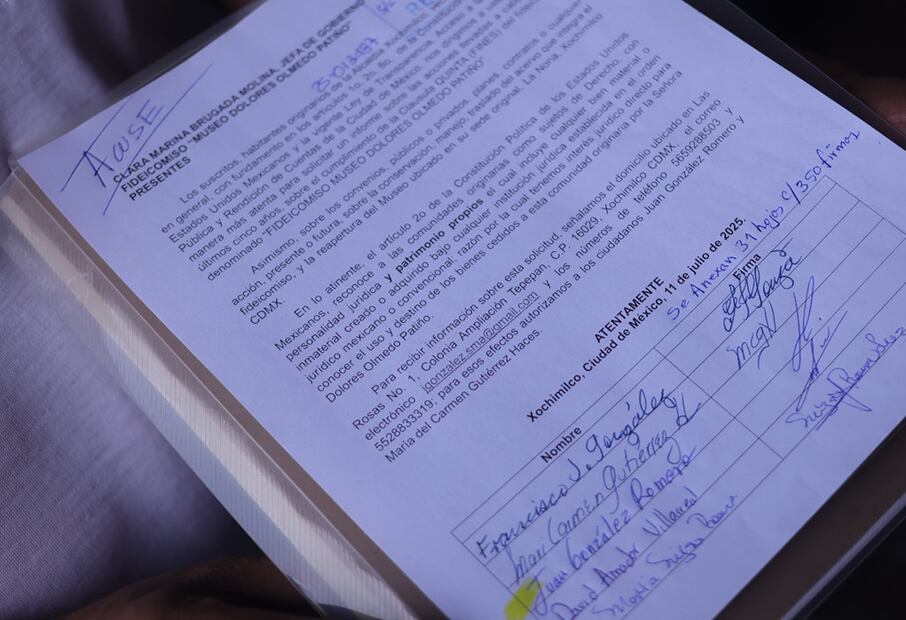 ACUSE
CLARA MARINA BRUGADA MOLINA, JEFA DE GOBIERNO
FIDEICOMISO "MUSEO DOLORES OLMEDO PATIÑO"
PRESENTES
Los suscritos, habitantes originarios de
en general, con fundamento en los artículos 1o, 2o, 8o, de la
Estados Unidos Mexicanos y la vigente Ley de Transparencia, Acceso a
Pública y Rendición de Cuentas de la Ciudad de México, nos dirigimos a
manera más atenta para solicitar un informe sobre las acciones llevadas a
últimos cinco años sobre el cumplimiento de la Cláusula QUINTA (FINES) del
denominado "FIDEICOMISO MUSEO DOLORES OLMEDO PATIÑO".
Asimismo, sobre los convenios, públicos o privados, planes, contratos o cualquier
acción, presente o futura, sobre la conservación, manejo, traslado del acervo que integra el
fideicomiso, y la reapertura del Museo ubicado en su sede original, La Noria, Xochimilco
CDMX.
En lo atinente, el artículo 2o de la Constitución Política de los Estados Unidos
Mexicanos, reconoce a las comunidades originarias como sujetos de Derecho, con
personalidad jurídica y patrimonio propios el cual incluye cualquier bien material o
inmaterial creado o adquirido bajo cualquier institución jurídica establecida en el orden
jurídico mexicano o convencional, razón por la cual tenemos interés jurídico directo para
conocer el uso y destino de los bienes cedidos a esta comunidad originaria por la Señora
Dolores Olmedo Patiño.
Para recibir información sobre esta solicitud, señalamos el domicilio ubicado en Las
Rosas No. 1, Colonia Ampliación Tepepan, C.P. 16029, Xochimilco CDMX, el correo
electrónico jgonzalez.sma@gmail.com y los números de teléfono 5659288503 y
5528833319; para esos efectos autorizamos a los ciudadanos Juan González Romero y
María del Carmen Gutiérrez Haces.
ATENTAMENTE
Xochimilco, Ciudad de México, 11 de julio de 2025.
Se Anexan 31 hojas c/350 firmas
Nombre Firma
Francisco J. González
Mari Carmen Gutiérrez H. mcgH
Juan González Romero
David Amador Villareal
María Suiza